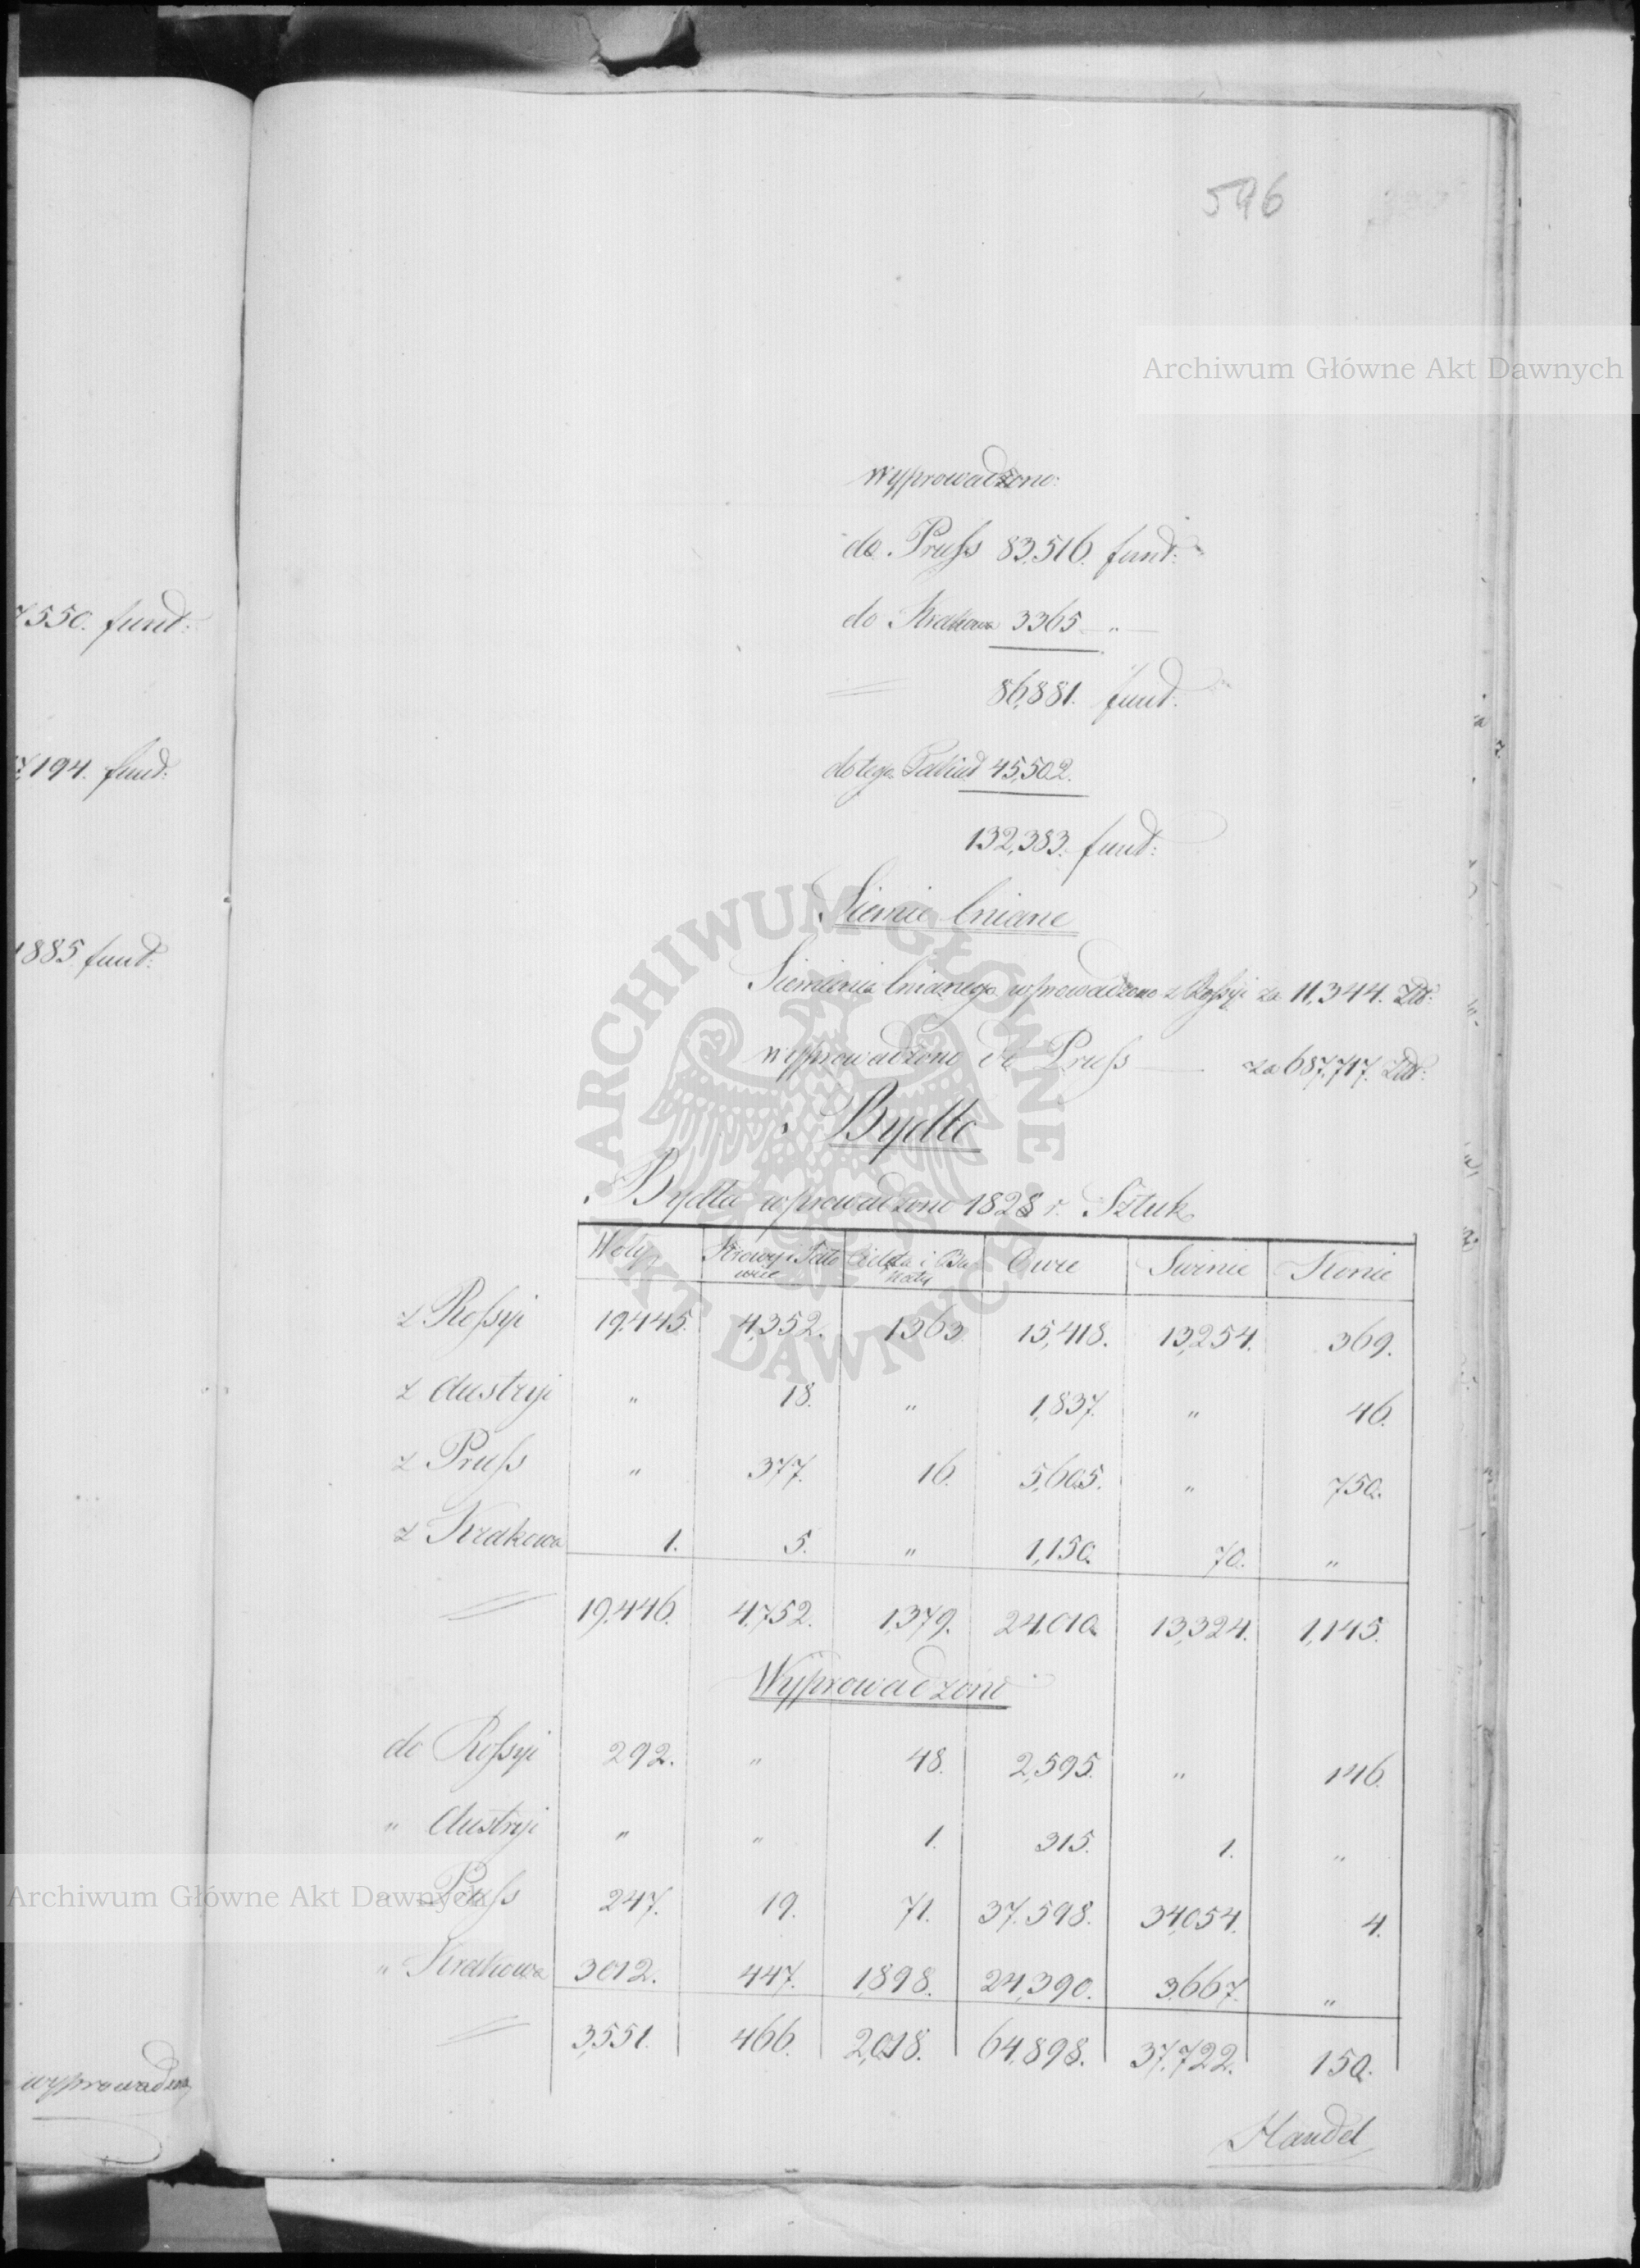 596
Archiwum Główne Akt Dawnych
wyprowadzono:
do Pruſs 83,516. funt:
do Krakowa 3365 — " —
86,881. funt:
do tego 45,502.
132,383. funt:
Siemie lniane
Siemienia lnianego wprowadzono z Roſsyi za 11,344. Złt:
wyprowadzono do Pruſs — za 687,717. Złt:
Bydło
Bydła wprowadzono 1828 r. Sztuk
Woły Krowy i Jałowice Cielęta i Owce Świnie Konie
z Roſsyi 19,445. 4,352. 1363 15,418. 13,254. 369.
z Austryi " 18. " 1,837. " 46.
z Pruſs " 377. 16. 5,605. " 750.
z Krakowa 1. 5. " 1,150. 70. "
19,446. 4,752. 1,379. 24,010. 13,324. 1,145.
Wyprowadzono
do Roſsyi 292. " 48. 2,595. " 146.
" Austryi " " 1. 315. 1. "
" Pruſs 247. 19. 71. 37,598. 34,054. 4.
" Krakowa 3012. 447. 1,898. 24,390. 3,667. "
3,551. 466. 2,018. 64,898. 37,722. 150.
Handel
7550. funt:
7,194. funt:
1885 funt:
wyprowadzono
Archiwum Główne Akt Dawnych
ARCHIWUM GŁÓWNE AKT DAWNYCH